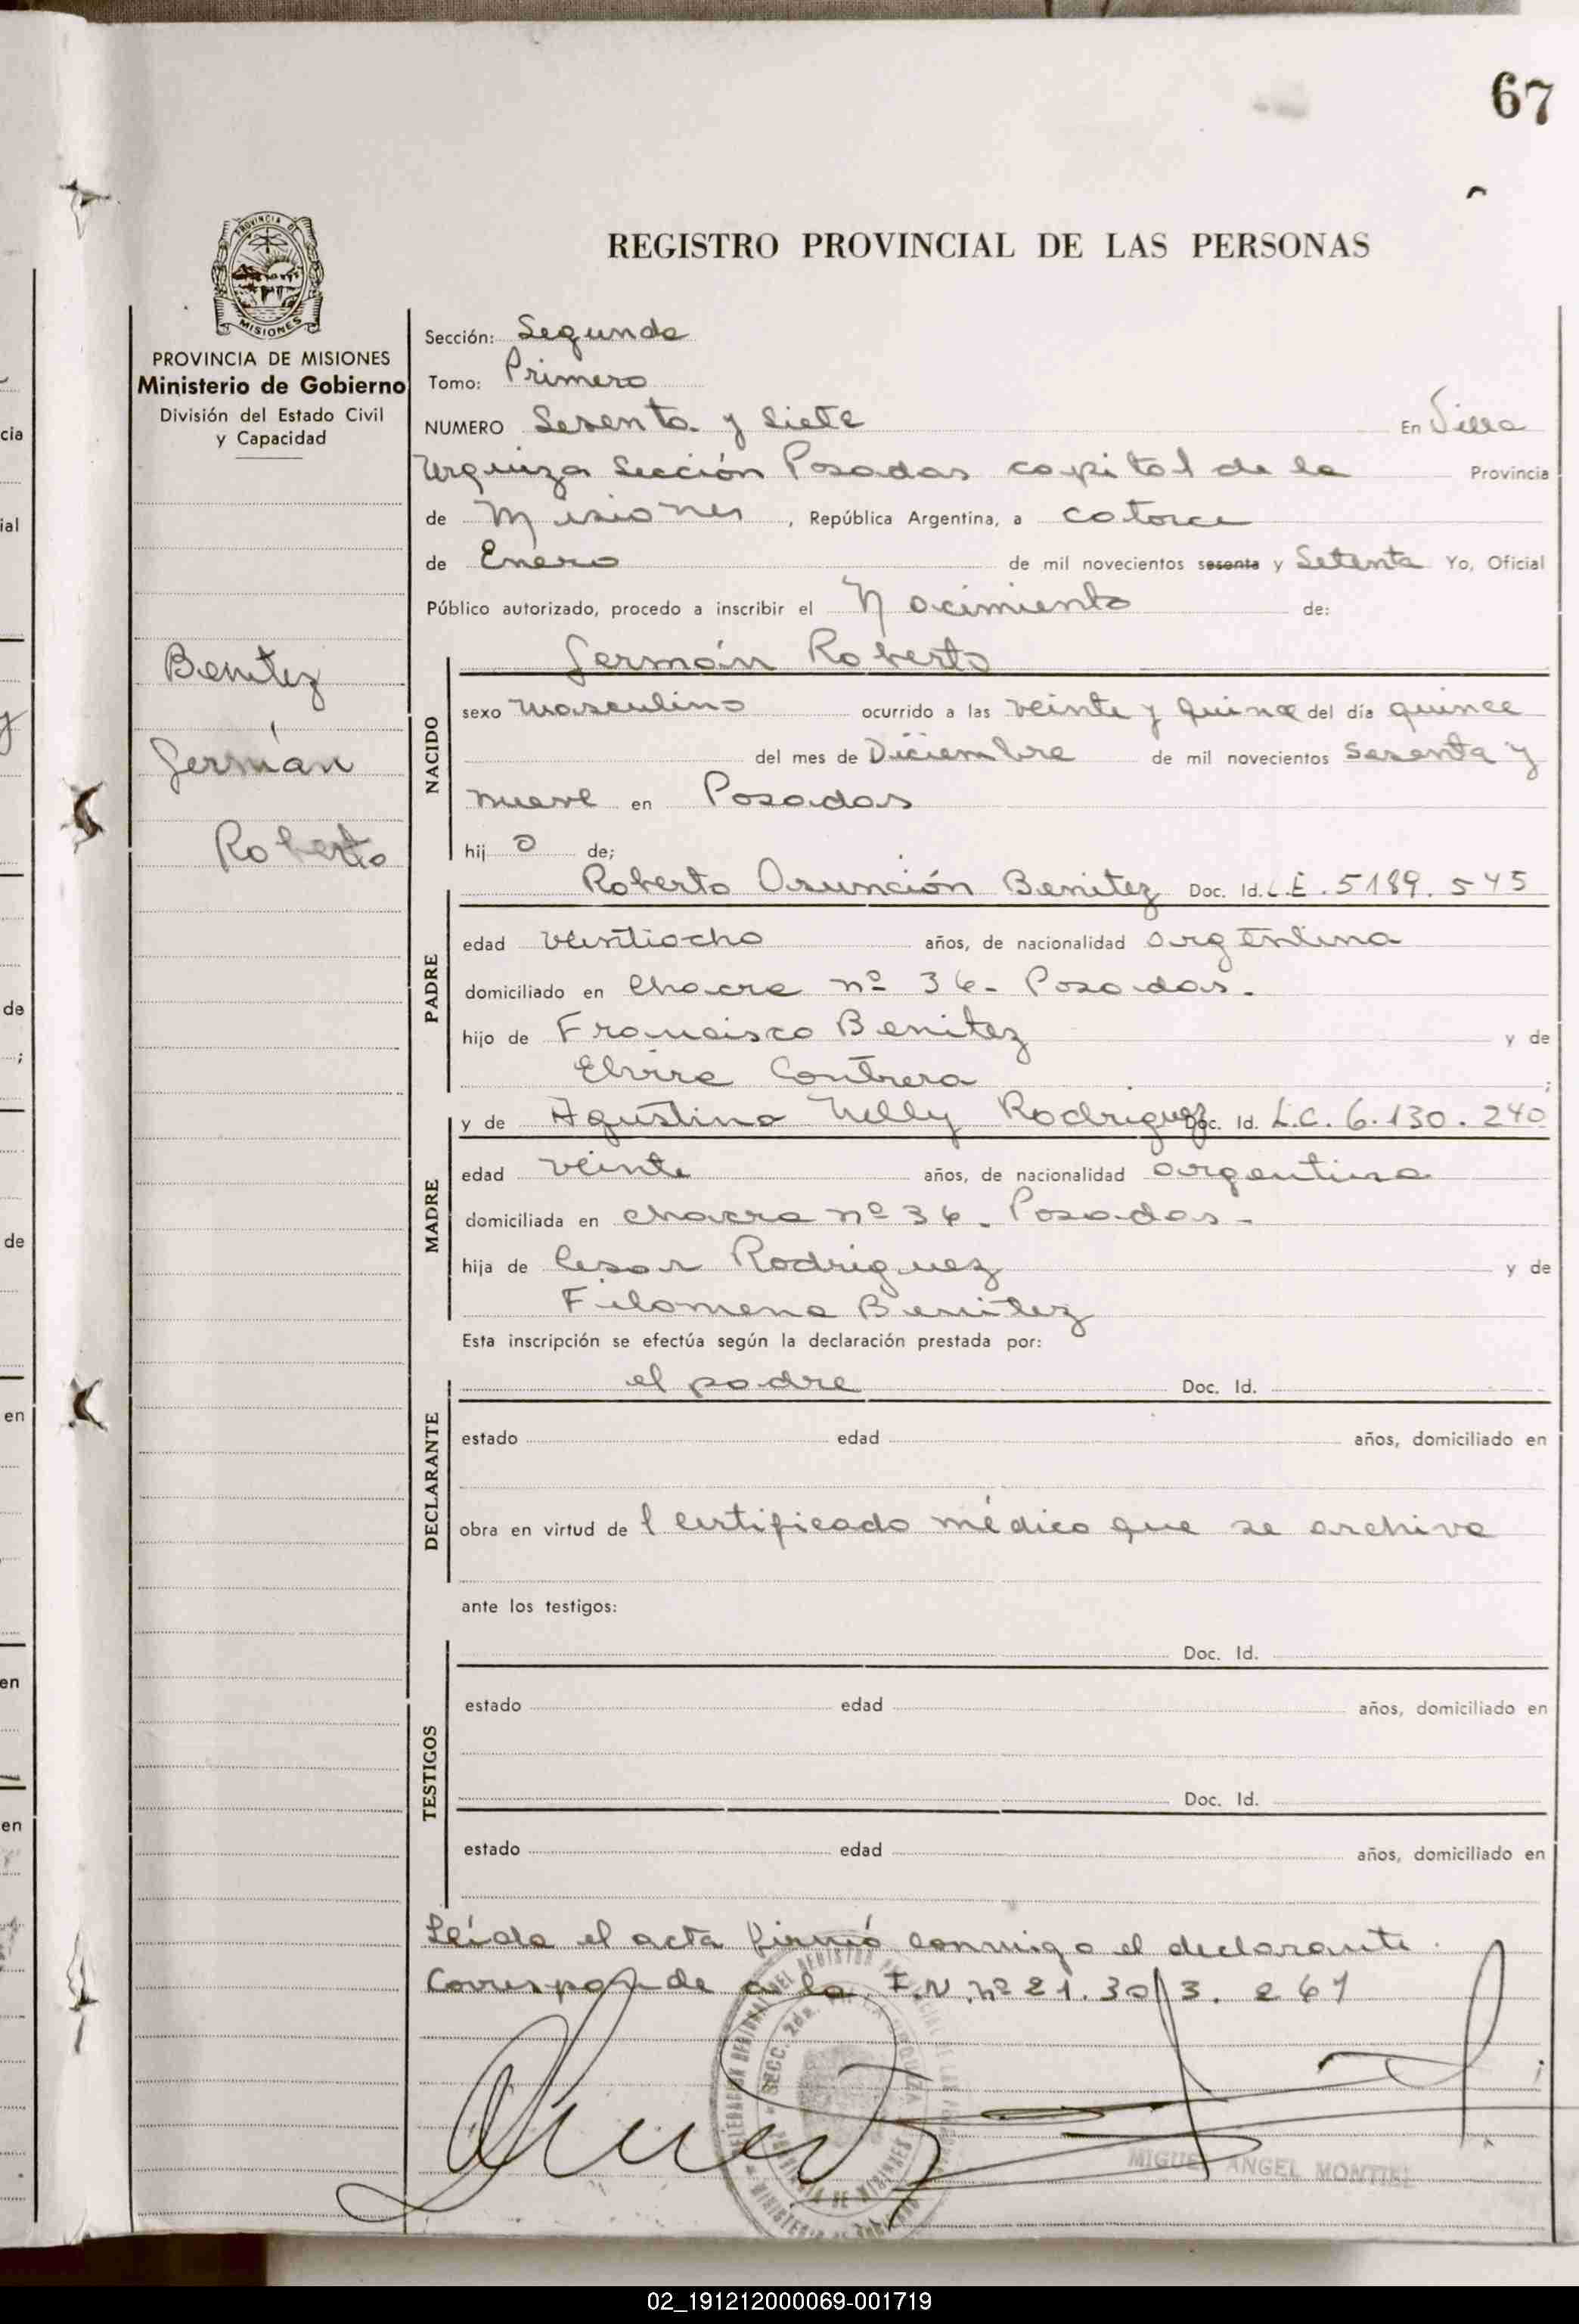 67
REGISTRO PROVINCIAL DE LAS PERSONAS
PROVINCIA DE MISIONES
Ministerio de Gobierno
División del Estado Civil
y Capacidad
Benitez
Germán
Roberto
Sección: Segunda
Tomo: Primero
NUMERO Sesenta y Siete En Villa
Urquiza Sección Posadas capital de la Provincia
de Misiones, República Argentina, a catorce
de Enero de mil novecientos sesenta y Setenta Yo, Oficial
Público autorizado, procedo a inscribir el Nacimiento de:
Germán Roberto
NACIDO
sexo masculino ocurrido a las veinte y quince del día quince
del mes de Diciembre de mil novecientos Sesenta y
nueve en Posadas
hij o de;
Roberto Asunción Benitez Doc. Id. L.E. 5189.545
PADRE
edad veintiocho años, de nacionalidad argentina
domiciliado en Chacra nº 36- Posadas.
hijo de Francisco Benitez y de
Elvira Contrera ;
y de Agustina Nelly Rodriguez Doc. Id. L.C. 6.130.240
MADRE
edad veinte años, de nacionalidad argentina
domiciliada en chacra nº 36. Posadas-
hija de Cesar Rodriguez y de
Filomena Benitez
Esta inscripción se efectúa según la declaración prestada por:
el padre Doc. Id.
DECLARANTE
estado edad años, domiciliado en
obra en virtud de l certificado médico que se archiva
ante los testigos:
Doc. Id.
TESTIGOS
estado edad años, domiciliado en
Doc. Id.
estado edad años, domiciliado en
Leída el acta firmó conmigo el declarante.
Corresponde a la I.N. nº 21.303.261
MIGUEL ANGEL MONTIEL
02_191212000069-001719